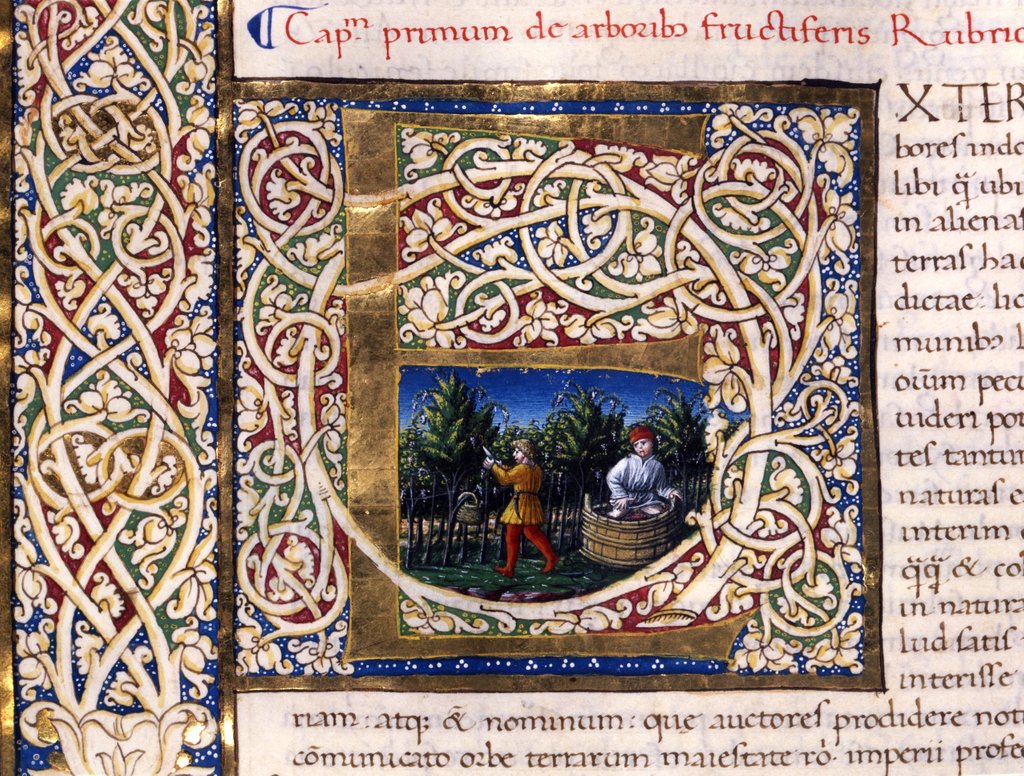 Capm primum de arboribꝰ fructiferis Rubric
EXTER
bores inde
libi q̃ ubi
in alienaſ
terraſ hac
dictae: lic
munibꝰ l
oium̄ pecu
uideri pot
tes tantum
naturaſ e
interim
q̃q̃ & col
in natura
lud ſatis
interiſſe
riam: atq; & nominum: que auctoreſ prodidere not
cõmunicato orbe terrarum maiestate ro. imperii profe